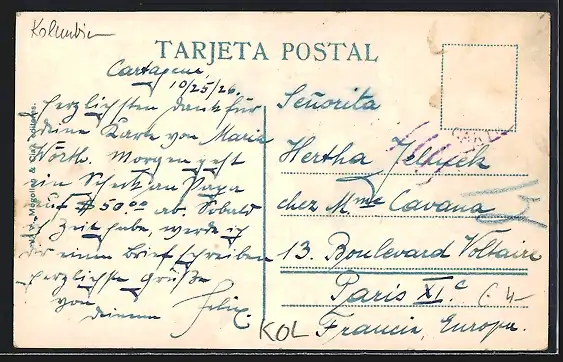 Kolumbien
TARJETA POSTAL
Cartagena,
10/25/26.
Herzlichsten Dank für
deine Karte von Maria
Wörth. Morgen geht
ein Scheck an Papa
auf $50.00 ab. Sobald
ich Zeit habe, werde ich
dir einen Brief schreiben
Herzlichste Grüße
von
deinem Felix.
Señorita
Hertha
chez Mme Cavana
13. Boulevard Voltaire
Paris XI.e
Francia, Europa.
KOL
Mogollon &
editores.